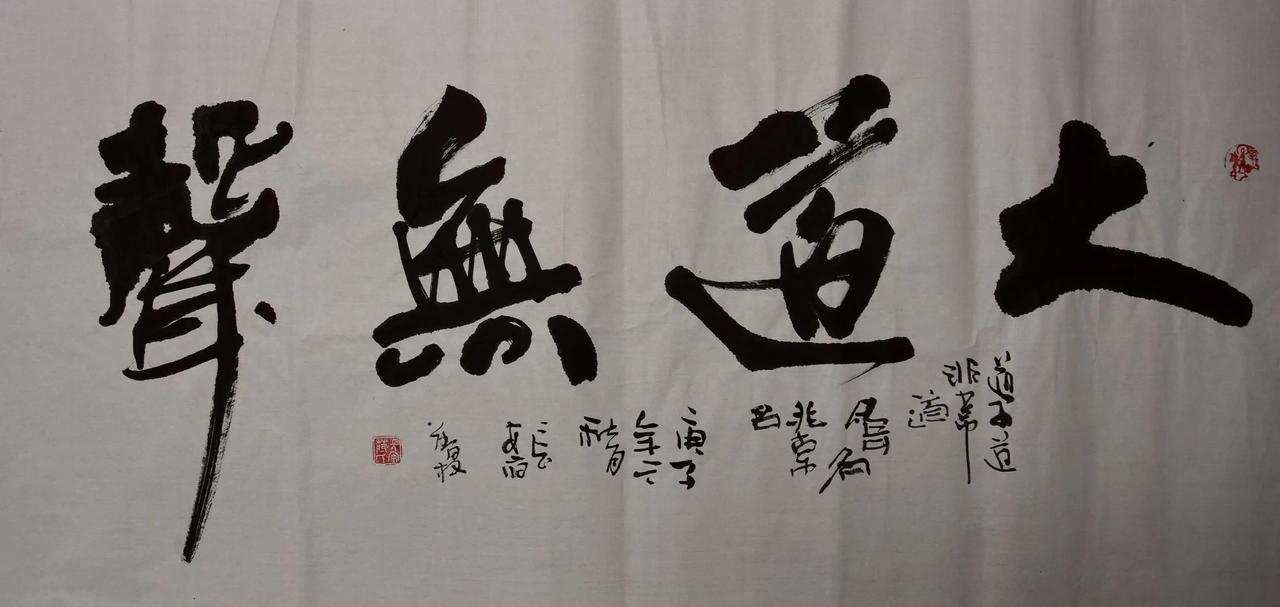 大道無聲
道可道
非常
道
名可名
非常
名
庚子
年
秋月